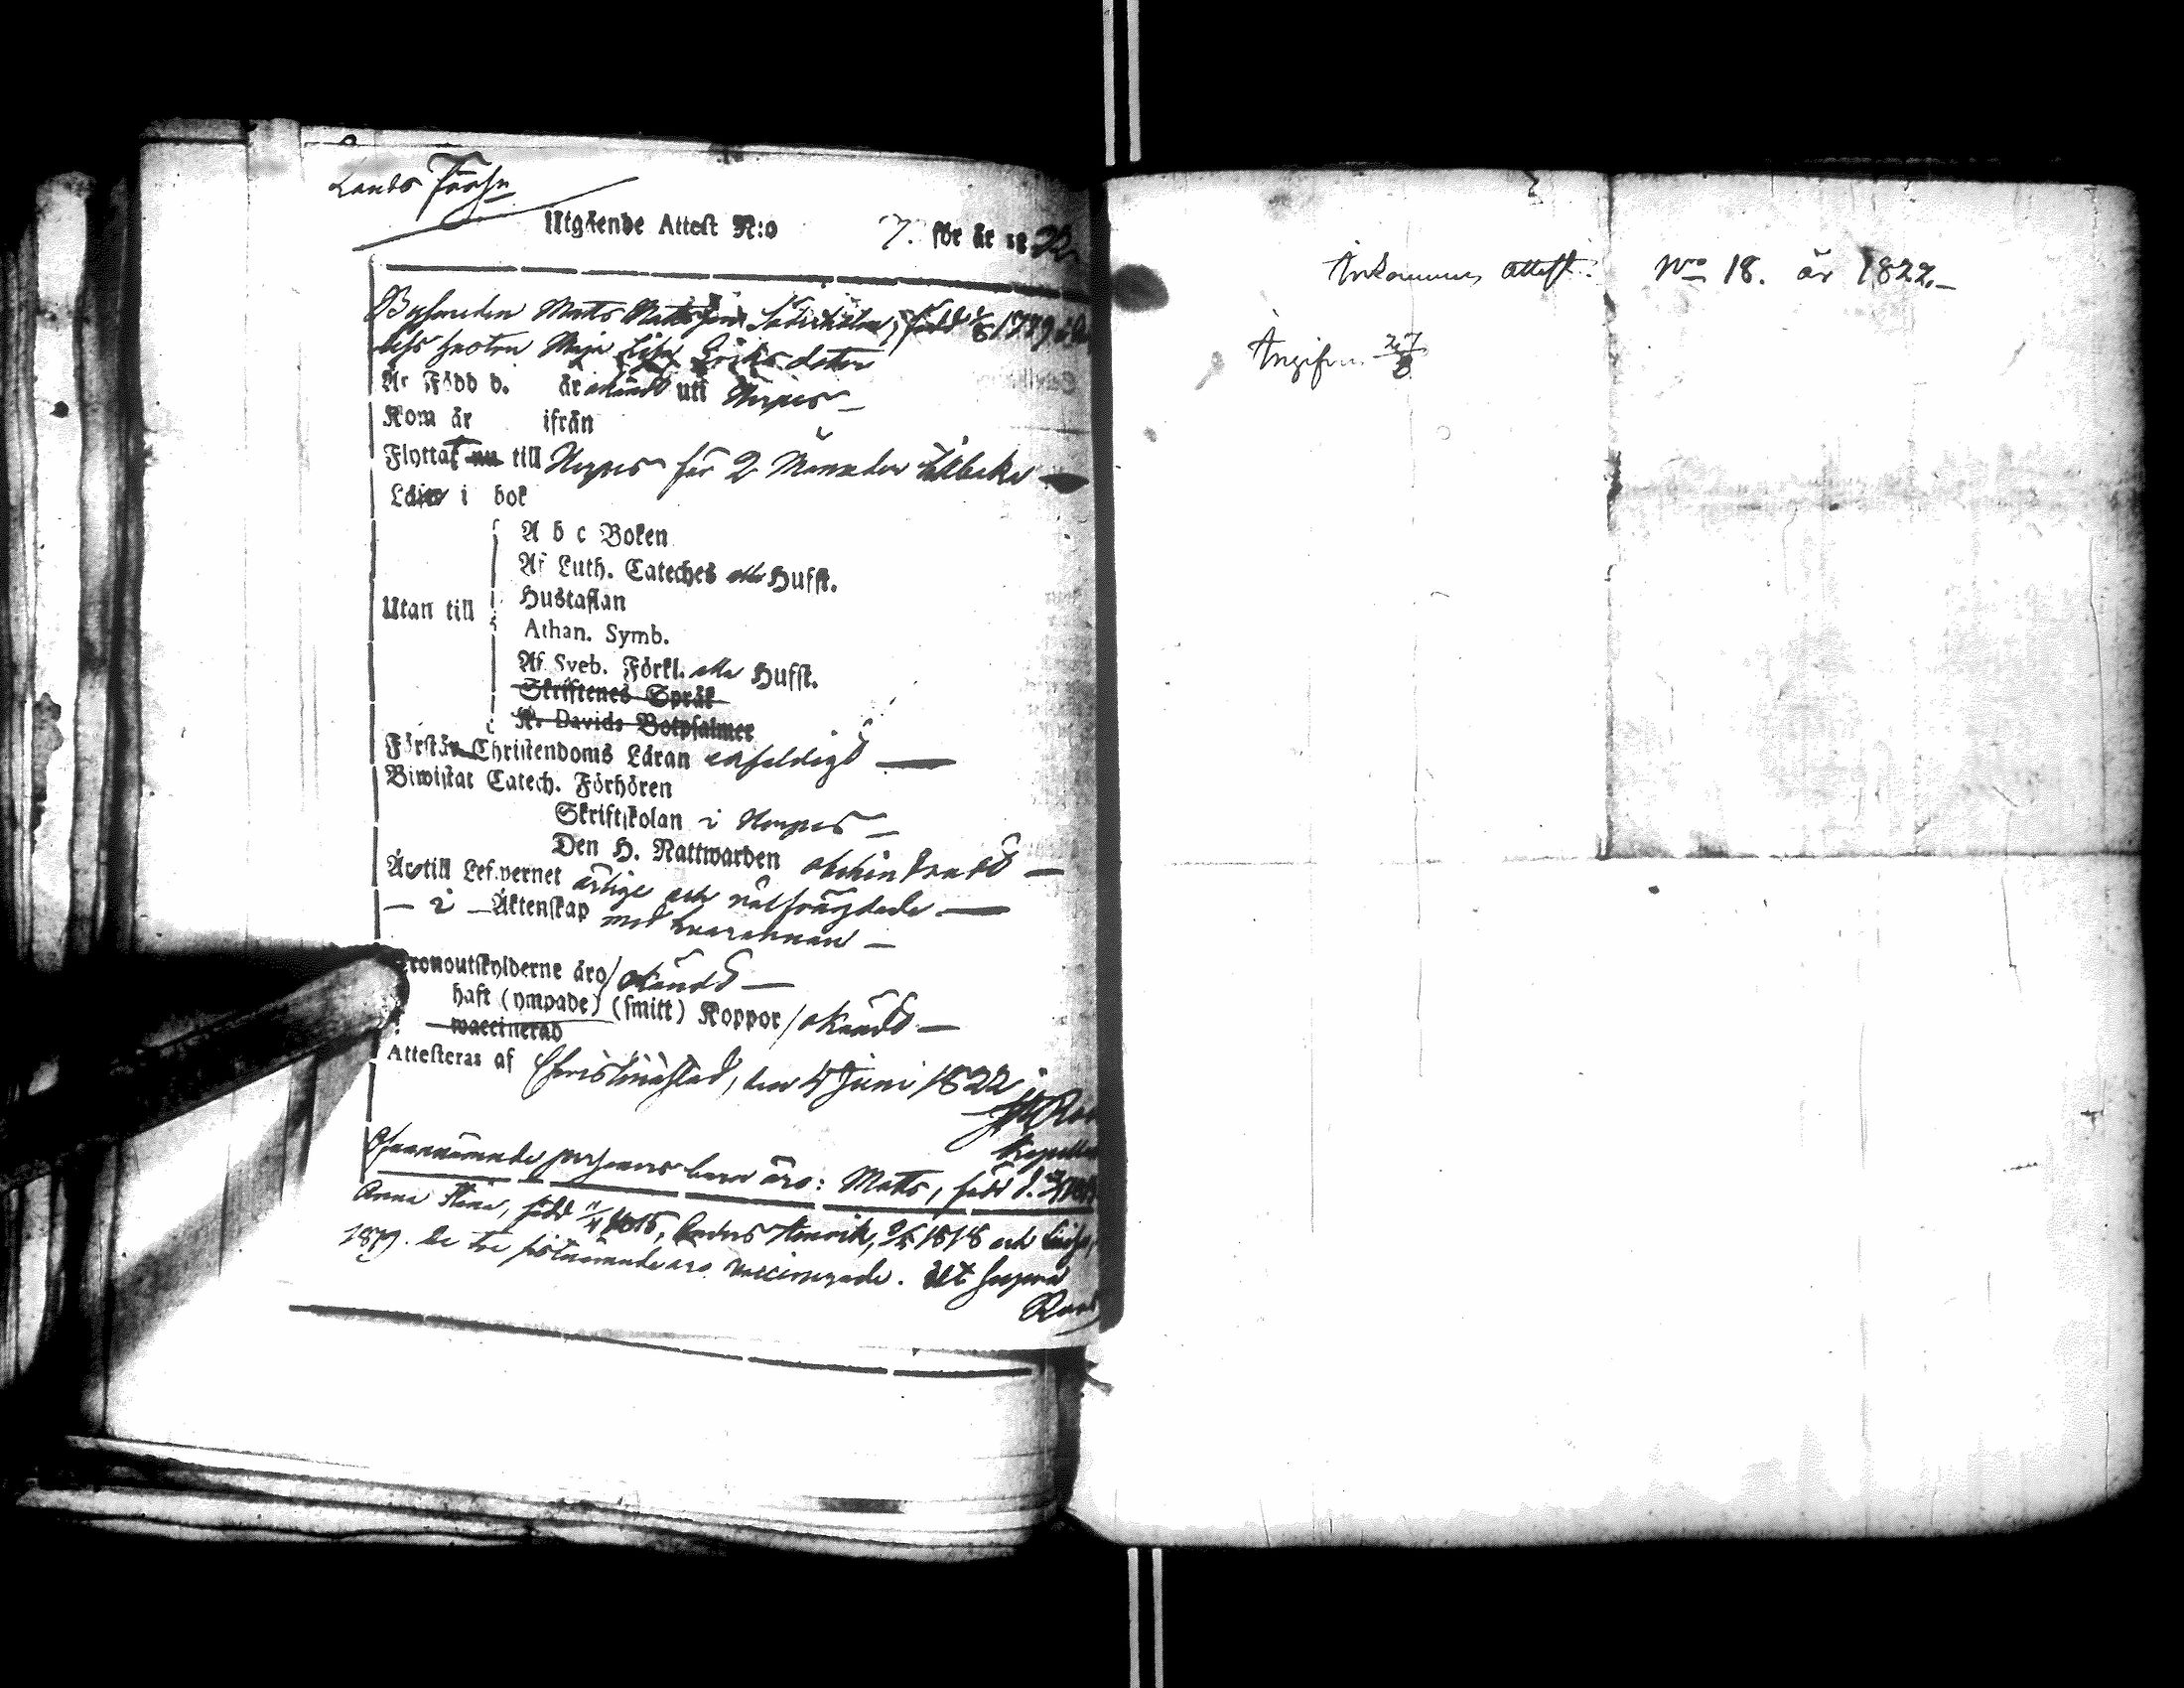 Lands Församl
Utgående Attest N:o 7. för år 1822
Bysmeden Matts Mattsson Söderholm, född 1779 och
dess hustru Maja Lisa Ericsdotter
Är Född d. år okändt uti Nerpes
Kom år ifrån
Flyttat nu till Nerpes för 2 Månader tilbaka
Läser i bok
A b c Boken
Af Luth. Cateches alla Hufst.
Utan till
Hustaflan
Athan. Symb.
Af Sveb. Förkl. alla Hufst.
Skriftenes Språk
K. Davids Botpsalmer
Förstår Christendoms Läran enfaldigt
Biwistat Catech. Förhören
Skriftskolan i Nerpes
Den H. Nattwarden obehindradt
Är till Lefvernet ärlige och välfrägdade
i Äktenskap med hvarannan
Cronoutskylderne äro/okändt
haft (ympade) (smitt) Koppor/okändt
waccinerad
Attesteras af Christinæstad, den 4 Juni 1822
Ofvannämnde personers barn äro: Matts, född d.
Anna Stina, född 11/4 1815, Anders Henrik, 1818 och
1819. De tre sistnämnde äro vaccinerade. Ut supra
Ankommen attest: No 18. år 1822.
Angifven 27/8